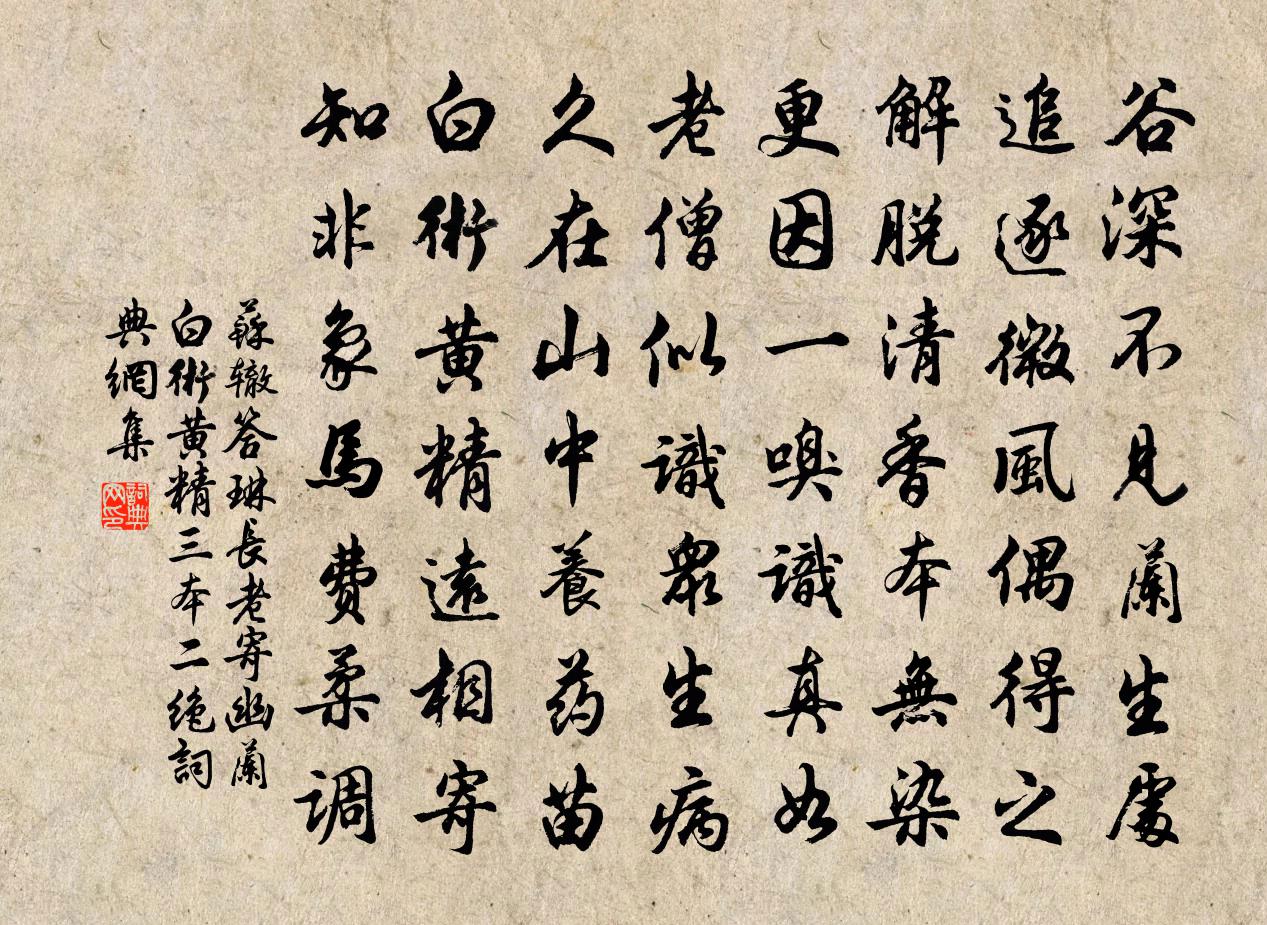 谷深不見蘭生處
追逐微風偶得之
解脱清香本無染
更因一嗅識真如
老僧似識衆生病
久在山中養药苗
白術黄精遠相寄
知非象馬費柔調
蘇辙答琳長老寄幽蘭
白術黄精三本二绝詞
典網集
詞典
网印